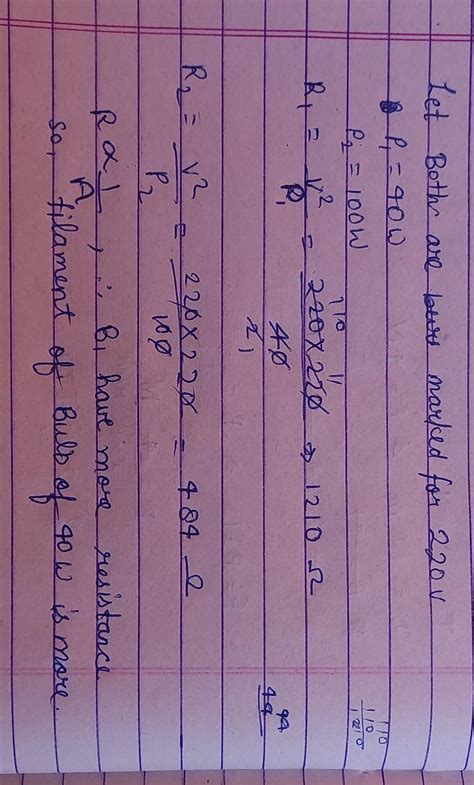 Let Both are marked for 220V
P₁ = 40W
P₂ = 100W
R₁ = V²/P₁ = 220×220/40 ⇒ 1210 Ω
110 11
2 1
R₂ = V²/P₂ = 220×220/100 = 484 Ω
R ∝ 1/A , ∴ B₁ have more resistance
so, filament of Bulb of 40W is more.
110
110
1210
44